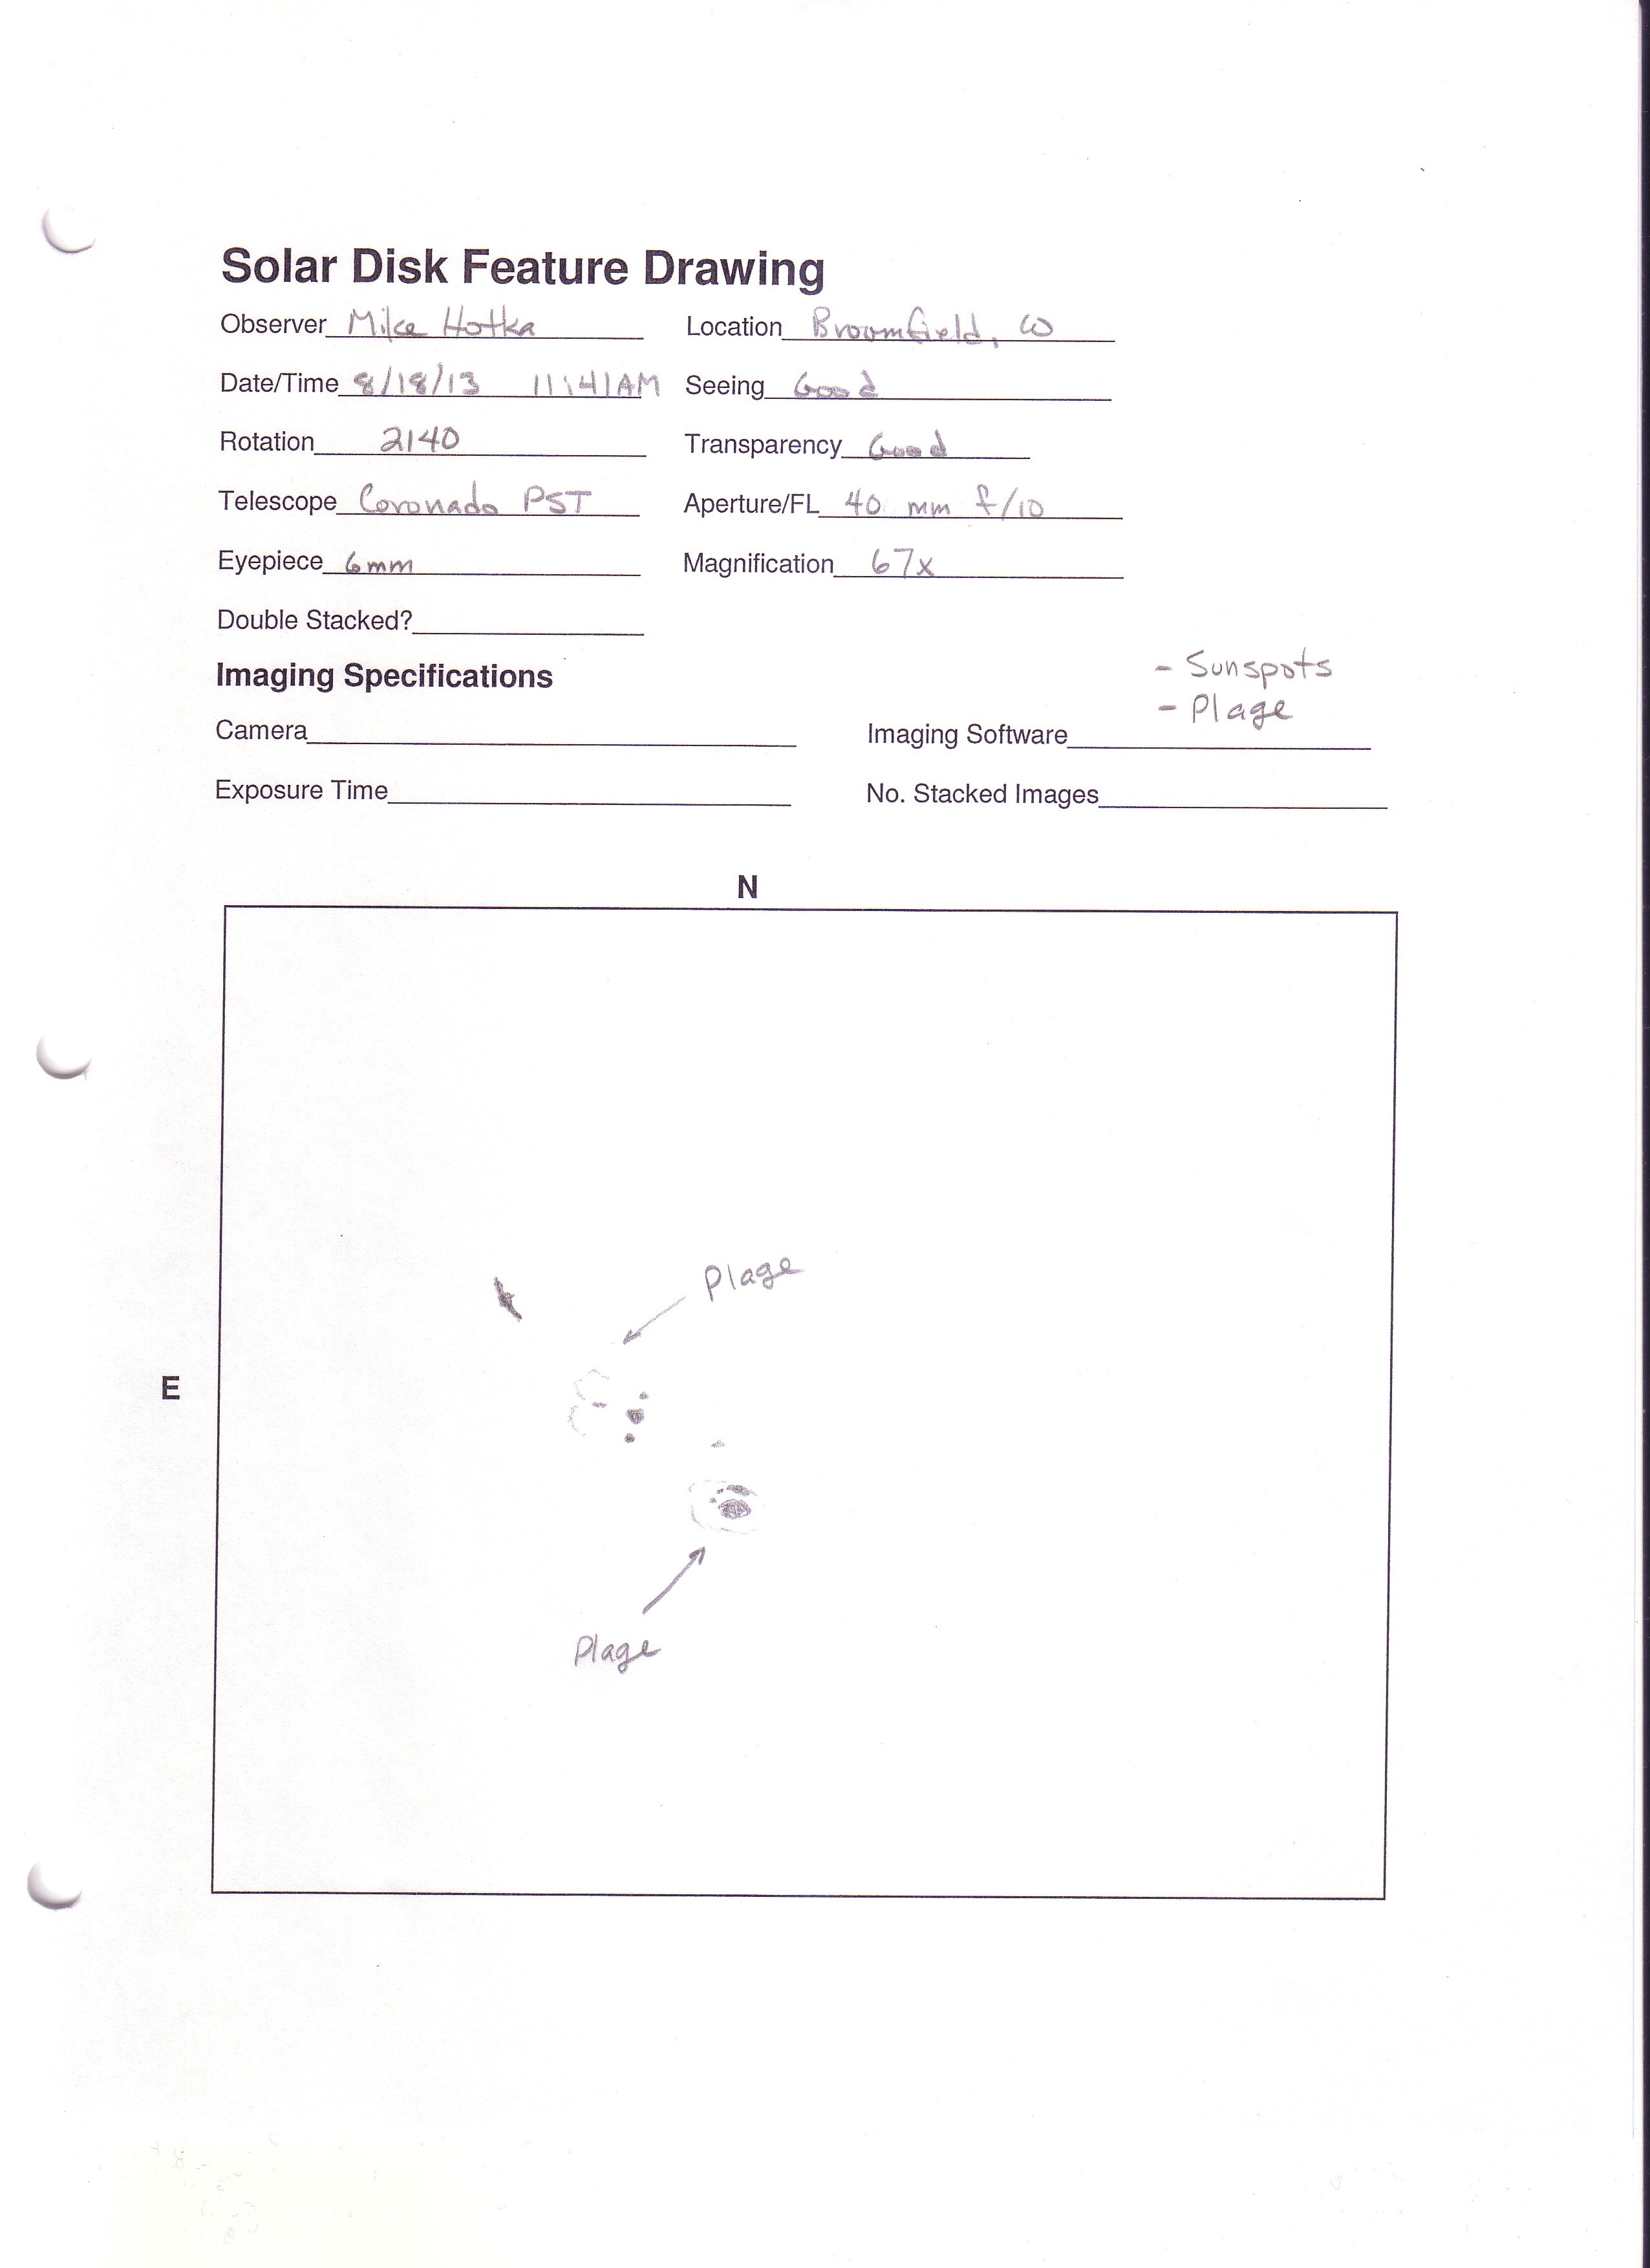 Solar Disk Feature Drawing
Observer Mike Hotka Location Broomfield, CO
Date/Time 8/18/13 11:41AM Seeing Good
Rotation 2140 Transparency Good
Telescope Coronado PST Aperture/FL 40 mm f/10
Eyepiece 6mm Magnification 67x
Double Stacked?
- Sunspots
Imaging Specifications
- Plage
Camera Imaging Software
Exposure Time No. Stacked Images
N
Plage
E
Plage